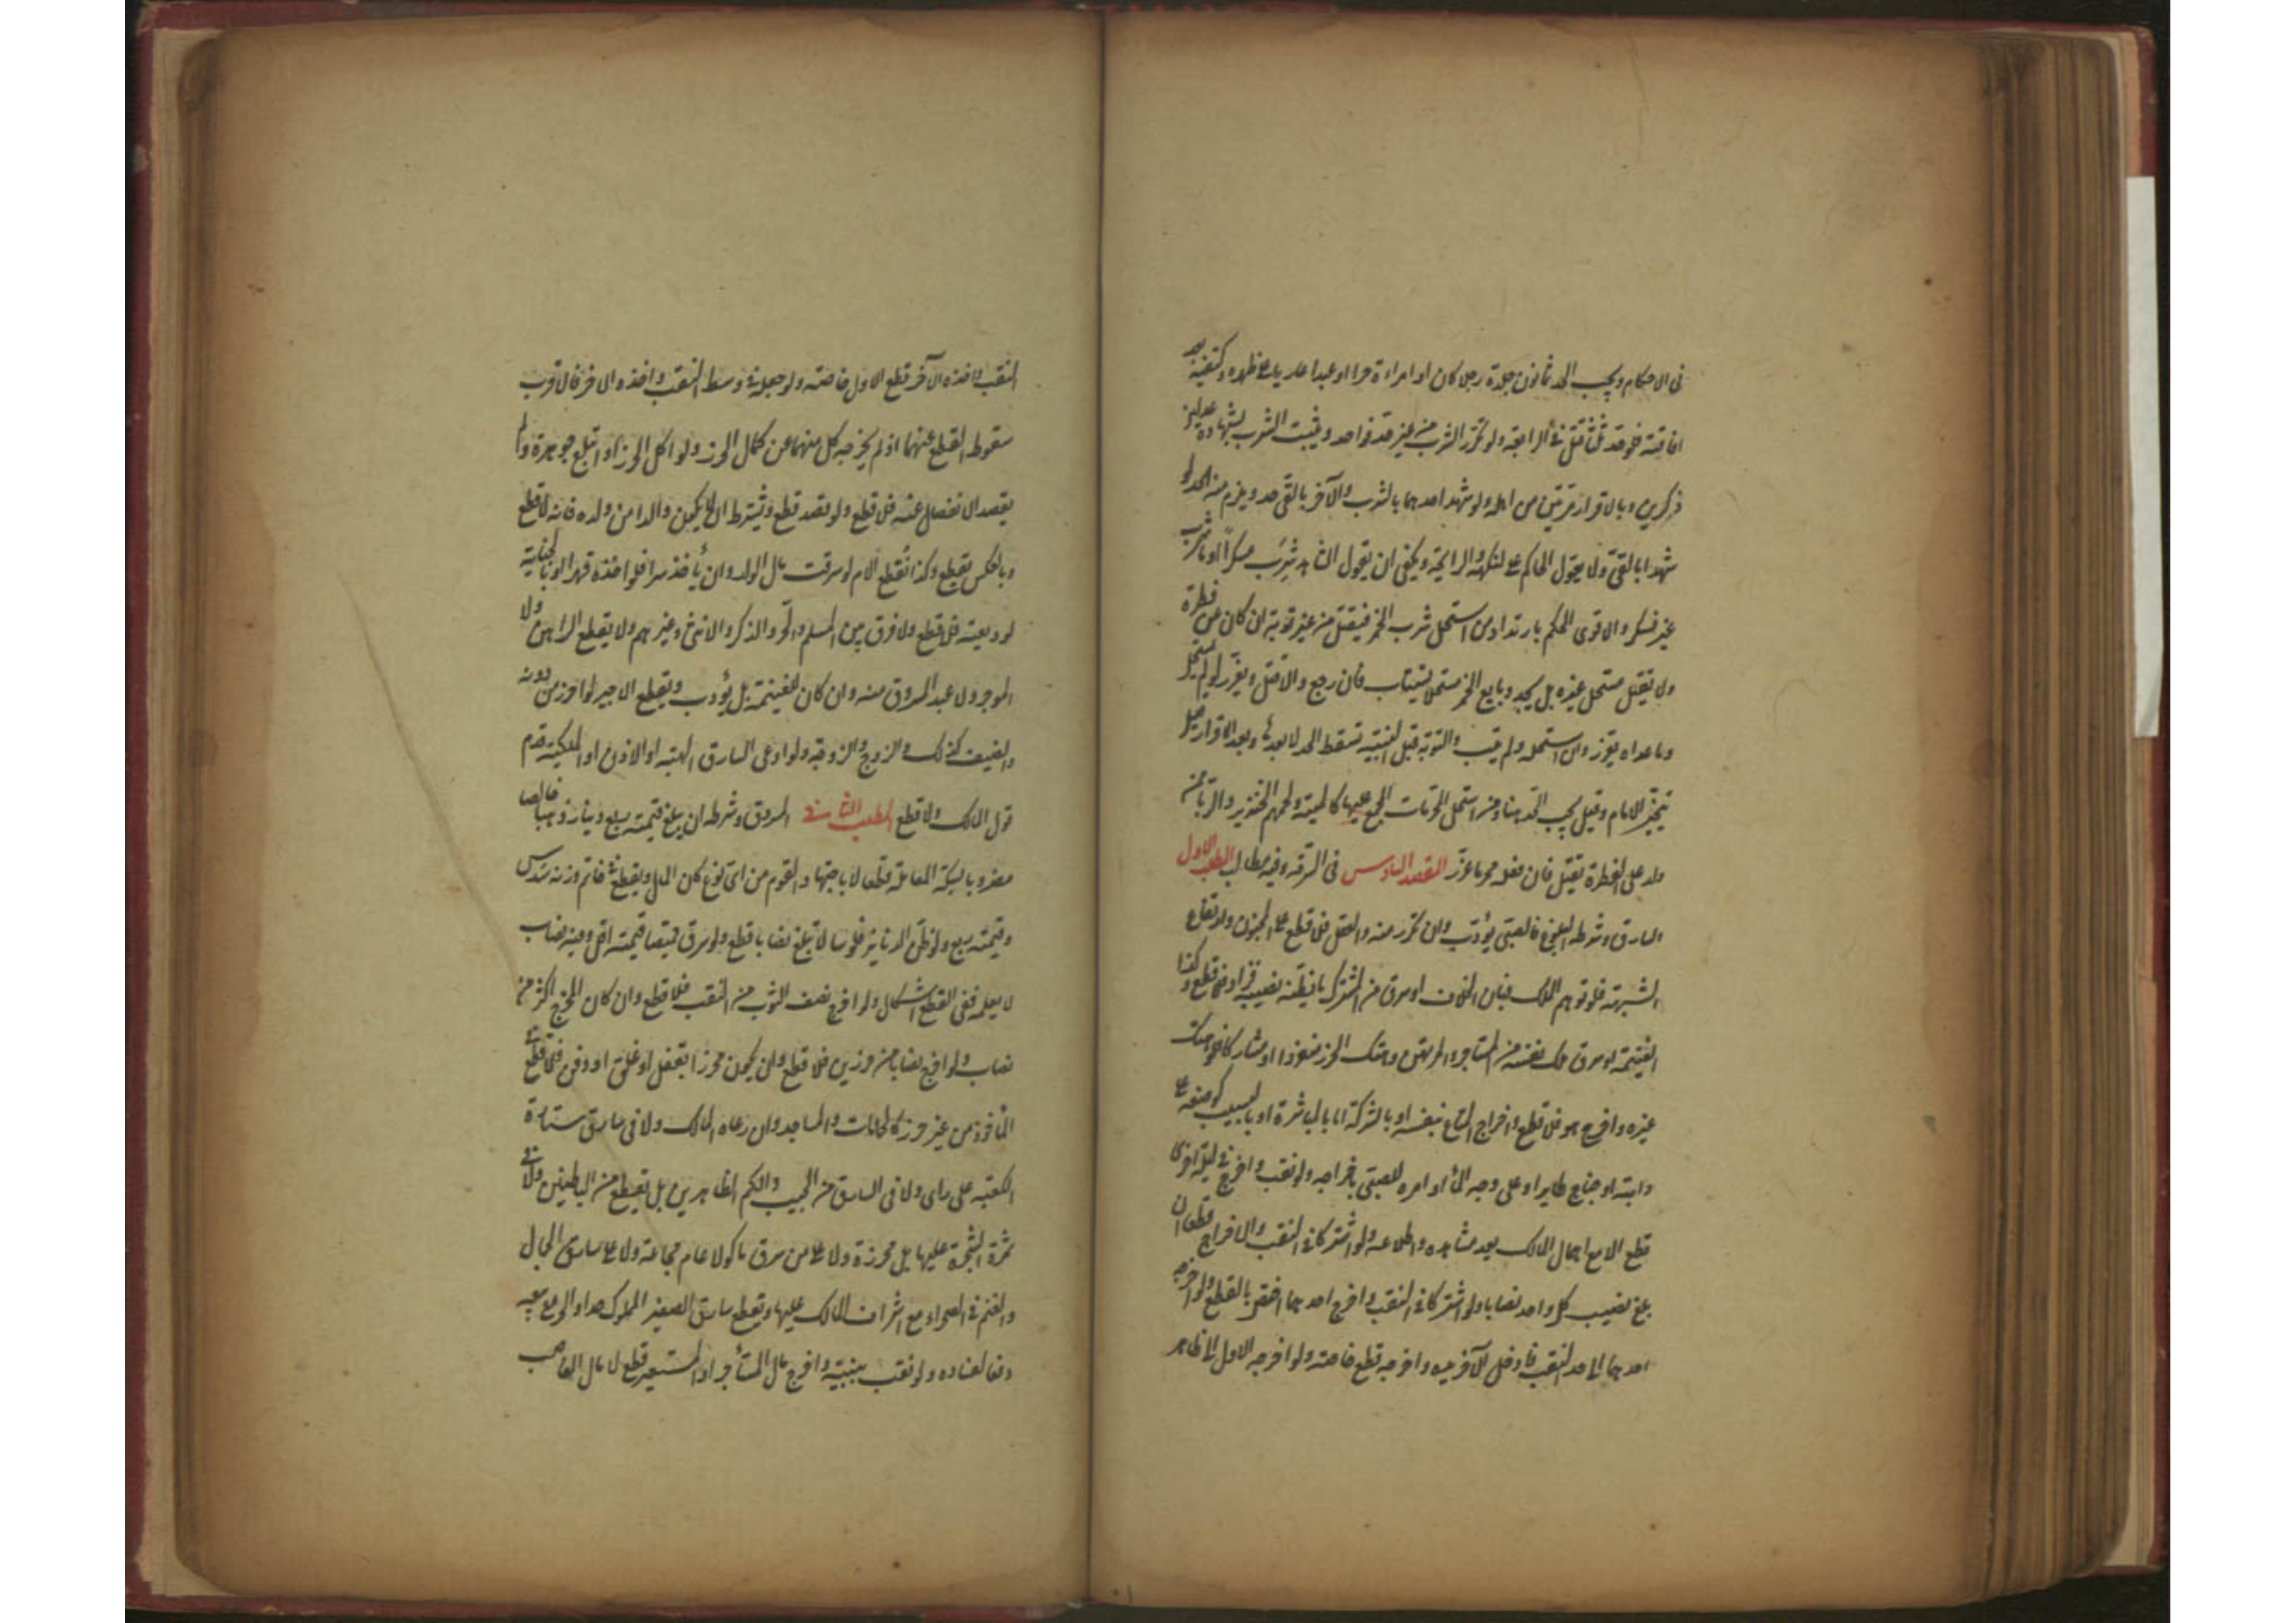 فى الاحكام ويجب الحد ثمانون جلدة رجلا كان او امراءة حرا او عبدا عاريا على ظهره وكتفيه بعد
افاقته فلو حد ثلثا قتل فى الرابعة ولو تكرر الشرب من غير حد فواحد ويثبت الشرب بشهادة عدلين
ذكرين وبالاقرار مرتين من اهله ولو شهد احدهما بالشرب والآخر بالقى حد ويلزم منه الحد لو
شهدا بالقئ ولا يعول الحاكم على النكهة والرايحة ويكفى ان يقول الشاهد شرب مسكرا او ما شرب
غيره فسكر والاقوى الحكم بارتداد من استحل شرب الخمر فيقتل من غير توبة ان كان عن فطرة
ولا يقتل مستحل غيره بل يحد وبايع الخمر مستحلا يستتاب فان رجع والا قتل ويعزر لو لم يستحل
وما عداه يعزر وان استحله ولم يتب والتوبة قبل البينة تسقط الحد لا بعدها وبعد الاقرار قيل
يتخير الامام وقيل يجب الحد هنا ومن استحل المحرمات المجمع عليها كالميتة ولحم الخنزير والربا ممن
ولد على الفطرة يقتل فان فعله محرما عزر المقصد السادس فى السرقة وفيه مطالب المطلب الاول
السارق وشرطه البلوغ فالصبى يؤدب وان تكرر منه والعقل فلا قطع على المجنون وارتفاع
الشبهة فلو توهم الملك فبان الخلاف او سرق من المشترك ما يظنه نصيبه فزاد فلا قطع وكذا
الغنيمة او سرق ملك نفسه من المستاجر والمرتهن وهتك الحرز منفردا او مشاركا فلو هتك
غيره واخرج هو فلا قطع واخراج المتاع بنفسه او بالشركة اما بالمباشرة او بالتسبيب كوضعه على
دابة او جناح طاير او على وجه الماء او امره للصبى باخراجه ولو نقب واخرج فى ليلة اخرى
قطع الا مع اهمال المالك بعد مشاهده واطلاعه ولو اشتركا فى النقب والاخراج قطعا ان
بلغ نصيب كل واحد نصابا ولو اشتركا فى النقب واخرج احدهما اختص بالقطع ولو اخرجه
احدهما الى حد النقب فادخل الآخر يده واخرجه قطع خاصة ولو اخرجه الاول الى ظاهر
النقب واخذه الآخر قطع الاول خاصة ولو جعله فى وسط النقب واخذه الاخر فالاقرب
سقوط القطع عنهما اذ لم يخرجه كل منهما عن كمال الحرز ولو اكل فى الحرز او ابتلع جوهرة ولم
يقصد الانفصال عنه فلا قطع ولو قصد قطع ويشترط ان لا يكون والدا من ولده فانه لا قطع
وبالعكس يقطع وكذا تقطع الام لو سرقت مال الولد وان يأخذ سرا فلو اخذه قهرا او بالخيانة
لوديعته فلا قطع ولا فرق بين المسلم والحر والذكر والانثى وغيرهم ولا يقطع الراهن ولا
الموجر ولا عبد المسروق منه وان كان للغنيمة بل يؤدب ويقطع الاجير لو احرز من دونه
والضيف كذلك والزوج والزوجة ولو ادعى السارق الهبة او الاذن او الملكية قدم
قول المالك ولا قطع المطلب الثانى المسروق وشرطه ان يبلغ قيمته ربع دينار ذهبا خالصا
مضروبا بسكة المعاملة قطعا لا باجتهاد المقوم من اى نوع كان المال ويقطع فى خاتم وزنه سدس
وقيمته ربع ولو ظن الدنانير فلوسا لا تبلغ نصابا قطع ولو سرق قميصا قيمته اقل وفيه نصاب
لا يعلمه ففى القطع اشكال ولو اخرج نصف الثوب من النقب فلا قطع وان كان المخرج اكثر من
نصاب ولو اخرج نصابا من حرزين فلا قطع وان يكون محرزا بقفل او غلق او دفن فلا قطع فى
المأخوذ من غير حرز كالحمامات والمساجد وان رعاه المالك ولا فى سارق ستارة
الكعبة على راى ولا فى السارق من الجيب والكم الظاهرين بل يقطع من الباطنين ولا فى
ثمرة الشجرة عليها بل محرزة ولا على من سرق ماكولا عام مجاعة ولا على سارق الجمال
والغنم فى الصحراء مع اشراف المالك عليها ويقطع سارق الصغير المملوك حدا والحر مع بيعه
دفعا لفساده ولو نقب بيته واخرج مال المستأجر او المستعير قطع لا مال الغاصب